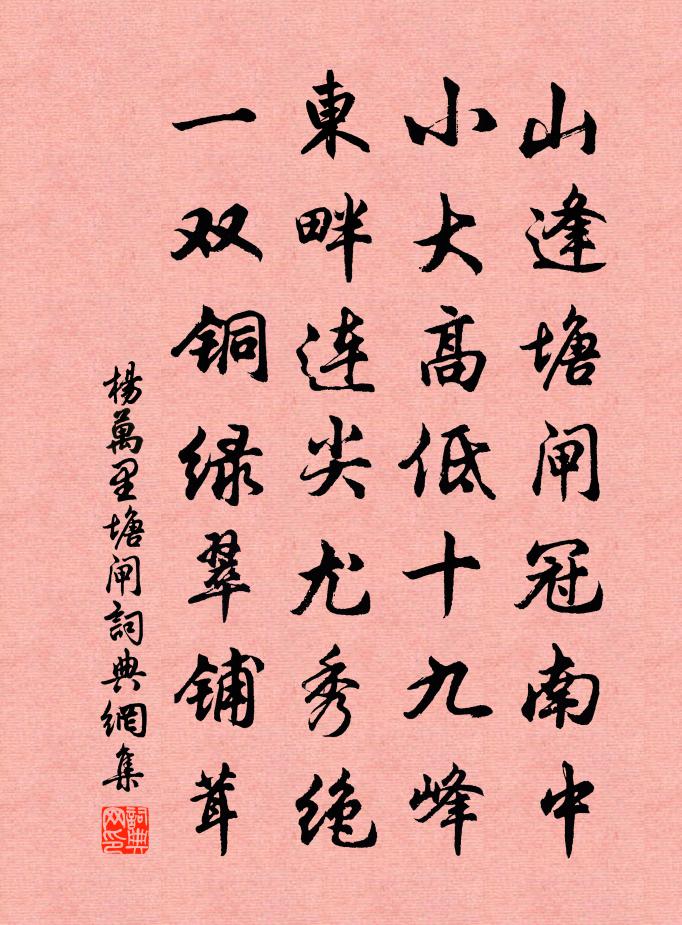 山逢塘闸冠南中
小大高低十九峰
東畔連尖尤秀绝
一双铜绿翠铺茸
楊萬里塘闸詞典網集
詞典网印